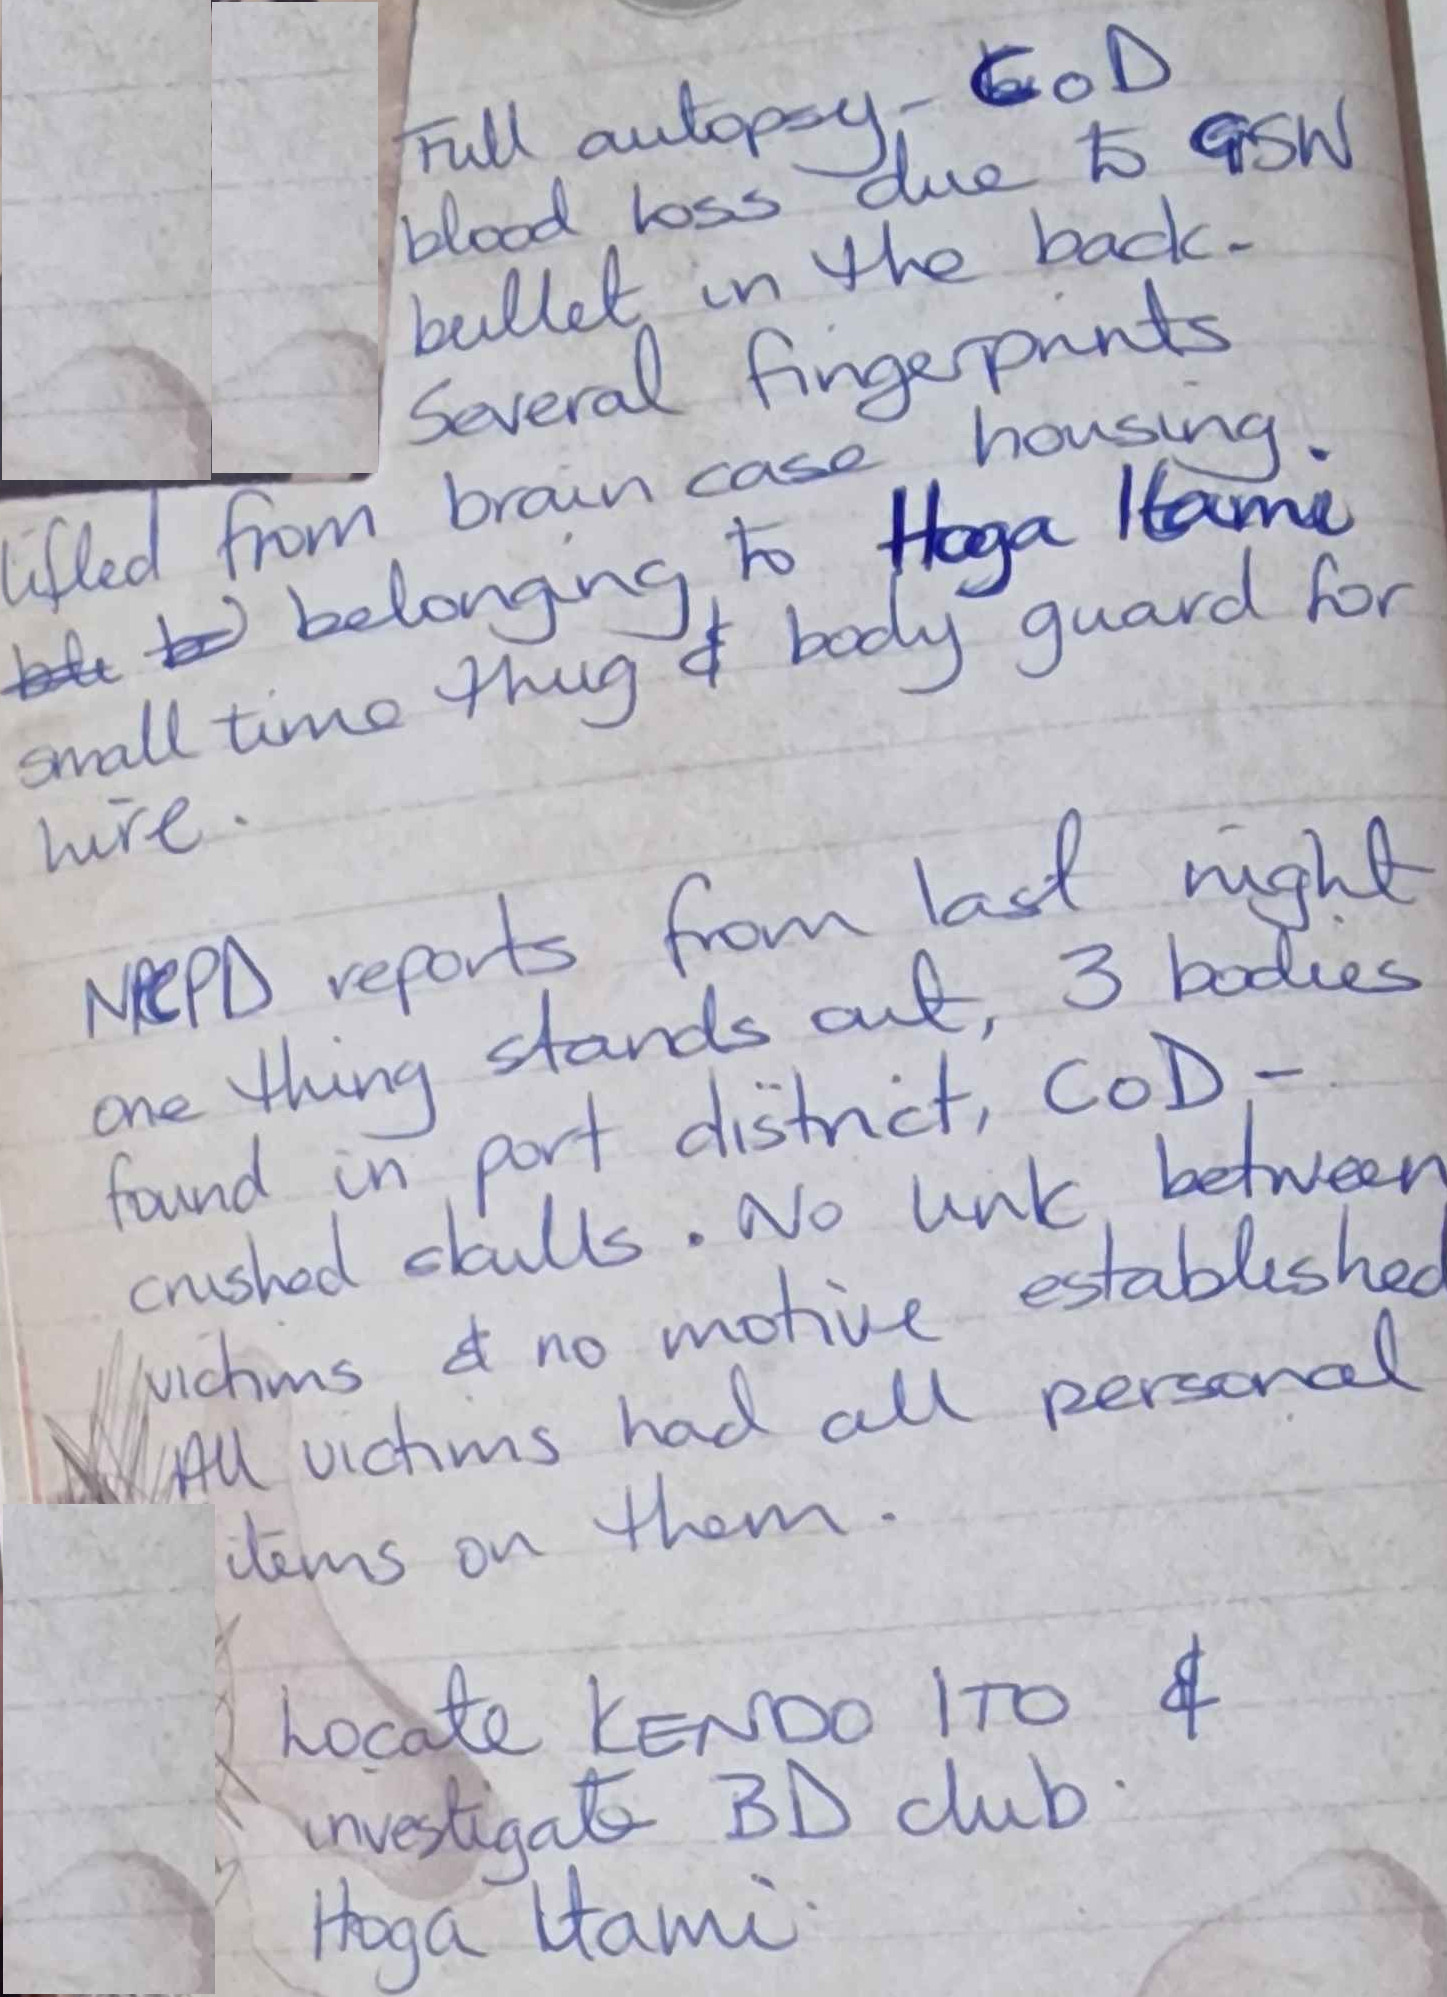 Full autopsy - CoD
blood loss due to GSW
bullet in the back -
Several fingerprints
lifted from brain case housing.
belonging to Hoga Itami
small time thug & body guard for
hire.
NCPD reports from last night
one thing stands out, 3 bodies
found in port district, CoD -
crushed skulls. No link between
victims & no motive established
All victims had all personal
items on them.
Locate KENDO ITO &
investigate BD club.
Hoga Itami